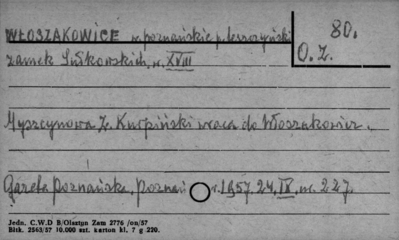 WŁOSZAKOWICE w. poznańskie p. leszczyński
80.
zamek Sułkowskich, w. XVIII
O.Z.
Myszcynowa Z. Kurpiński wraca do Włoszakowic.
Gazeta Poznańska, Poznań r. 1957. 24, IX, nr. 227.
Jedn. C.W.D B/Olsztyn Zam 2776 /on/57
Bltk. 2563/57 10.000 szt. karton kl. 7 g 220.